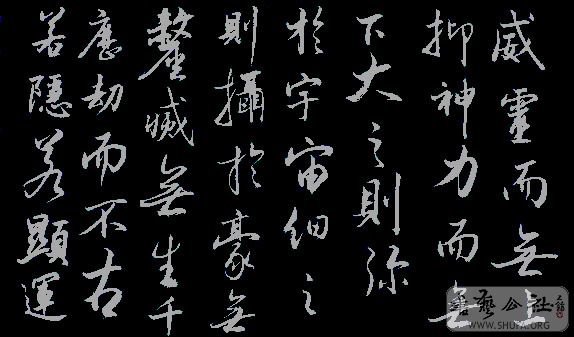 威靈而無上
抑神力而無
下大之則弥
於宇宙細之
則攝於豪無
釐滅無生千
歷劫而不古
若隱若顯運
書藝公社
WWW.SHUFA.ORG